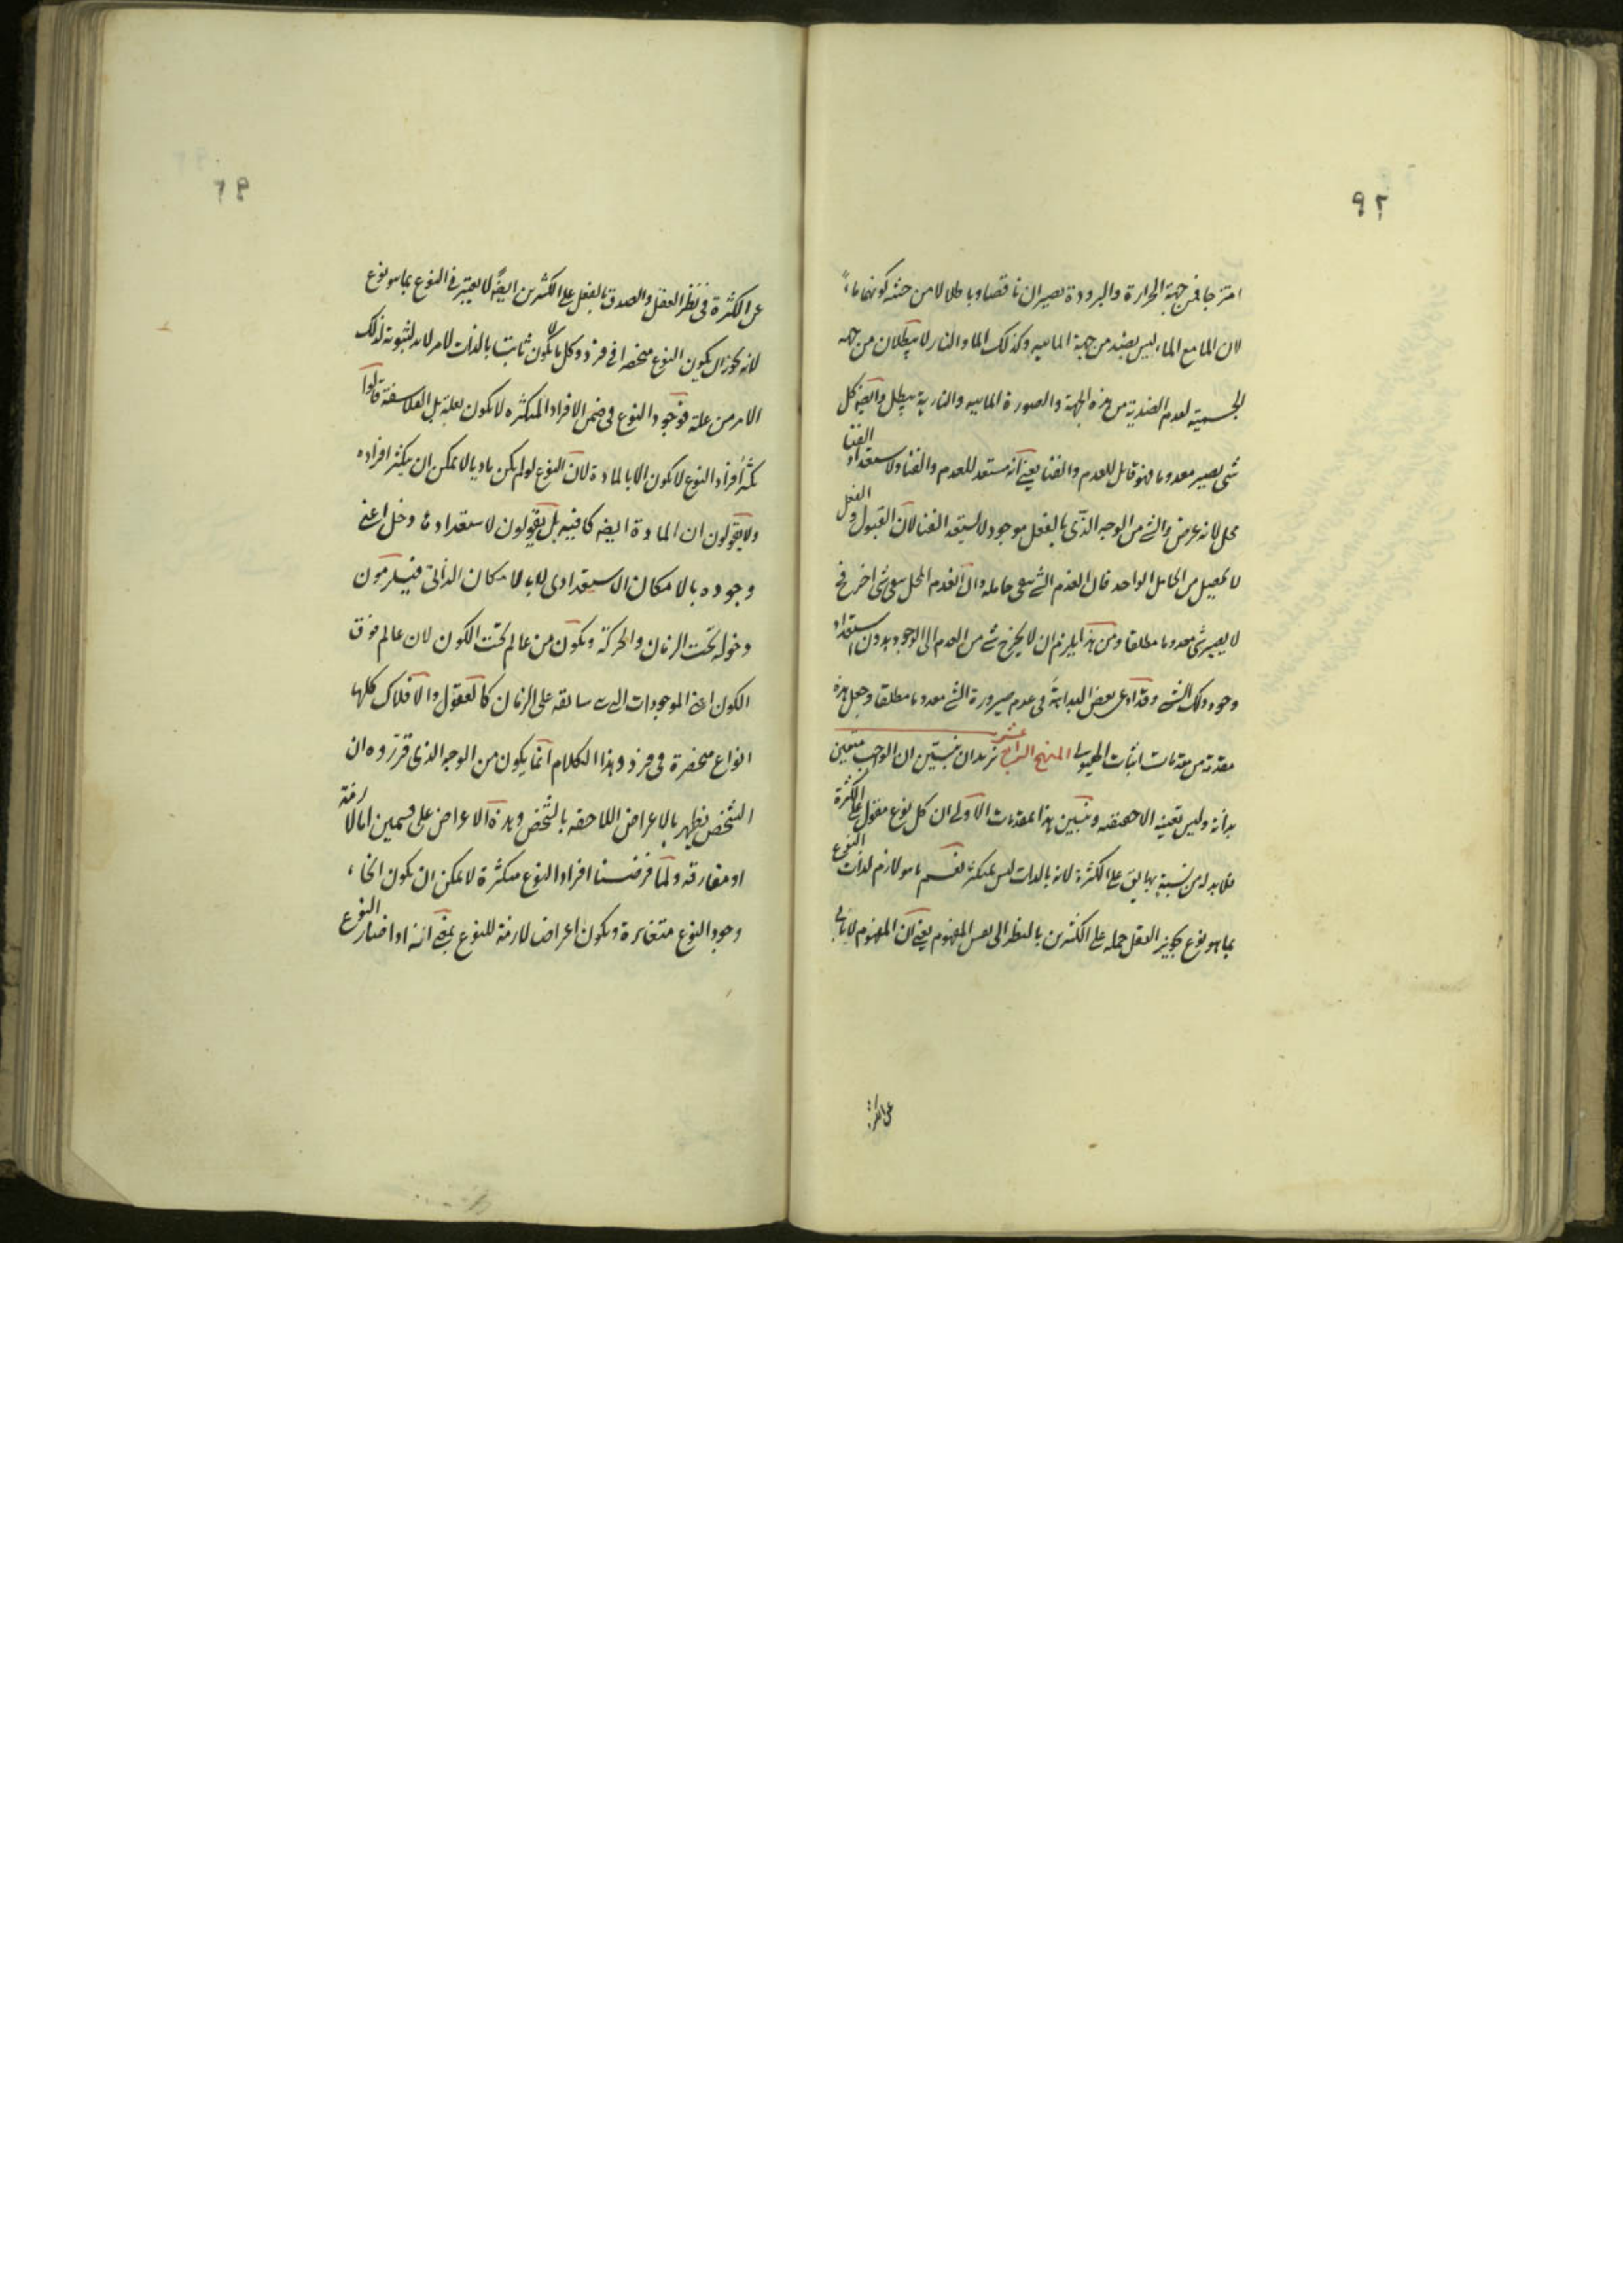 ٩٢
امتزجا فمن جهة الحرارة والبرودة يصيران ناقصا وباطلا لا من حيث كونهما ماء
لان الماء مع الماء ليس بضد من جهة المائيه وكذلك الماء والنار لا يبطلان من جهه
الجسميه لعدم الضدية من هذه الجهة والصورة المائيه والنارية يبطل وايضا كل
شئ يصير معدوما فهو قابل للعدم والفنا يعنى انه مستعد للعدم والفنا ولاستعداد الفنا
محل لانه عرض والشئ من الوجه الذى بالفعل موجود لا يستعد الفنا لان القبول والفعل
لا يحصل من الحامل الواحد فان انعدم الشئ بقى حامله وان انعدم المحل بقى شئ اخر فح
لا يصير شئ معدوما مطلقا ومن هذا يلزم ان لا يخرج شئ من العدم الى الوجود بدون استعداد
وجود ذلك الشئ وقد ادعى بعض البداهة فى عدم صيرورة الشئ معدوما مطلقا وجعل هذه
مقدمة من مقدمات اثبات الهيولى المنهج الرابع عشر نريد ان نبين ان الواجب متعين
بذاته وليس تعينه الا حقيقته ونبين هذا بمقدمات الاولى ان كل نوع مقول على الكثرة
فلابد له من نسبة بها يق على الكثرة لانه بالذات ليس بمتكثر نعم ما هو لازم لذات النوع
بما هو نوع تجويز العقل حمله على الكثيرين بالنظر الى نفس المفهوم يعنى لان المفهوم لا يابى
عن الكثرة
٩٣
عن الكثرة فى نظر العقل والصدق بالفعل على الكثيرين ايضا لا يعتبر فى النوع بما هو نوع
لانه يجوز ان يكون النوع منحصرا فى فرد وكل ما لا يكون ثابتا بالذات لامر لابد لثبوته لذلك
الامر من علة فوجود النوع فى ضمن الافراد المتكثره لا يكون بعلة بل الفلاسفة قالوا
تكثر افراد النوع لا يكون الا بالمادة لان النوع لو لم يكن ماديا لا يمكن ان يتكثر افراده
ولا يقولون ان المادة ايضا كافيه بل يقولون لاستعداد ما دخل اعنى
وجوده بالامكان الاستعدادى لا بالامكان الذاتى فيلزمون
دخوله تحت الزمان والحركة ويكون من عالم تحت الكون لان عالم فوق
الكون اعنى الموجودات التى سابقه على الزمان كالعقول والافلاك كلها
انواع منحصرة فى فرد وهذا الكلام انما يكون من الوجه الذى قرروه ان
الشخص يظهر بالاعراض اللاحقه بالشخص وهذه الاعراض على قسمين اما لازمة
او مفارقه ولما فرضنا افراد النوع متكثرة لا يمكن ان يكون انحاء
وجود النوع متغايرة ويكون اعراض لازمة للنوع بمعنى انه اذا صار النوع